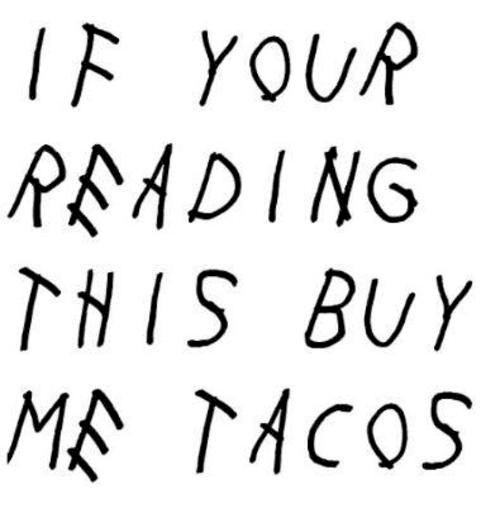 IF YOUR
READING
THIS BUY
ME TACOS